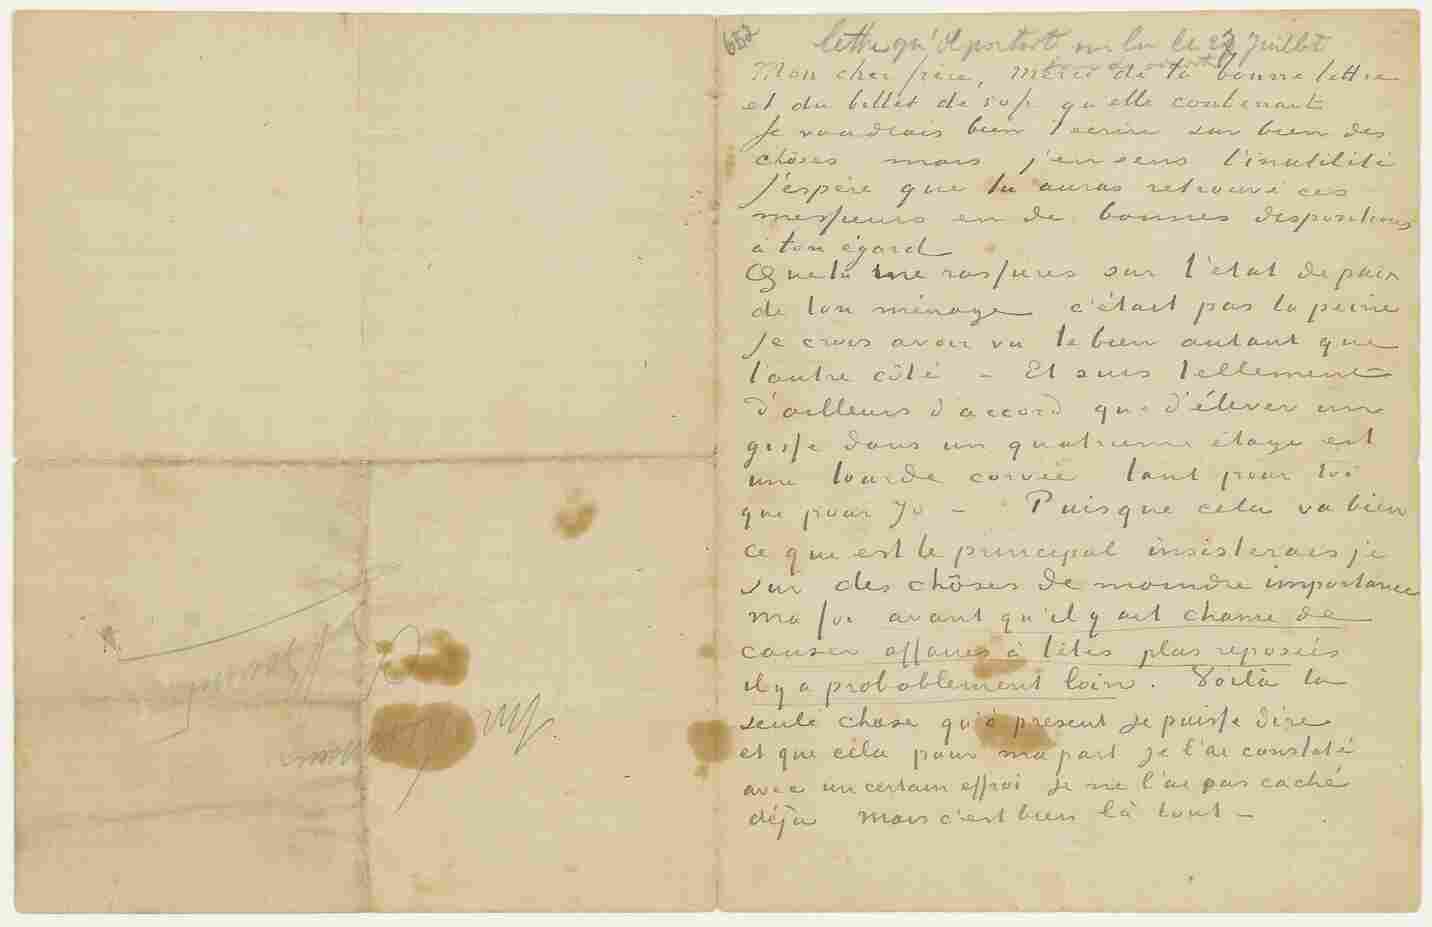 652
lettre qu'il portait sur lui le 27 Juillet
Mon cher frère, merci de ta bonne lettre
et du billet de 50 fr. qu'elle contenait
Je voudrais bien t'écrire sur bien des
chôses mais j'en sens l'inutilité
J'espère que tu auras retrouvé ces
messieurs en de bonnes dispositions
à ton égard
Que tu me rassures sur l'état de paix
de ton ménage c'était pas la peine
je crois avoir vu le bien autant que
l'autre côté – Et suis tellement
d'ailleurs d'accord que d'élever un
gosse dans un quatrieme étage est
une lourde corvée tant pour toi
que pour Jo – Puisque cela va bien
ce que est le principal insisterais je
sur des chôses de moindre importance
ma foi avant qu'il y ait chance de
causer affaires à têtes plus reposées
il y a probablement loin. Voilà la
seule chose qu'à présent je puisse dire
et que cela pour ma part je l'ai constaté
avec un certain effroi je ne l'ai pas caché
déjà mais c'est bien là tout –